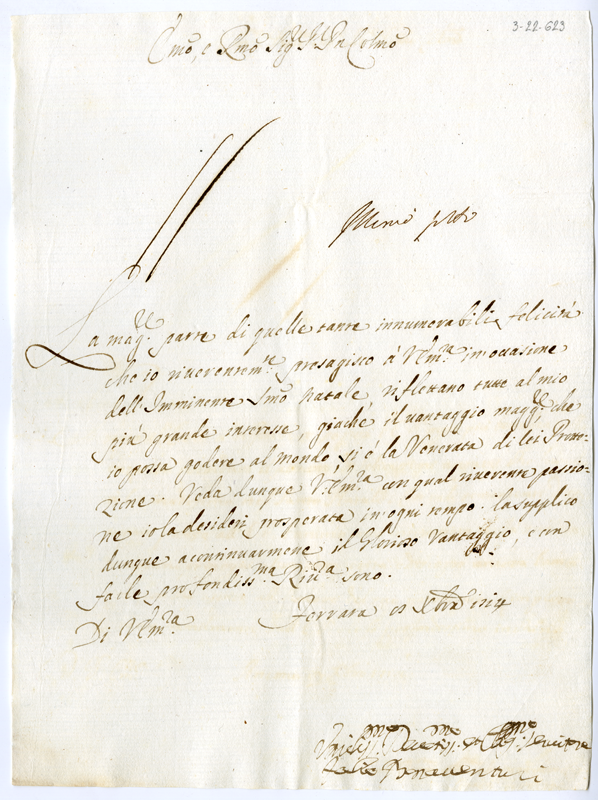 3-22-623
Emo, e Rmo Sigre Sigre Pn Colmo
La magre parte di quelle tante innumerabili felicità
che io riverentemte presagisco à V. Emza in occasione
dell'Imminente Smo Natale, riflettano tutte al mio
più grande interesse, giachè il vantaggio maggre che
io possa godere al mondo si è la Venerata di lei Prote-
zione. Veda dunque V. Emza con qual riverente passio-
ne io la desideri prosperata in ogni tempo. la supplico
dunque a continuarmene il Glorioso Vantaggio, e con
facile profondissma Rivza sono.
Di V. Emza Ferrara Xbre 1714
Umiliss.mo Devotiss.mo et Obb.mo Servitore
Bonaventuri